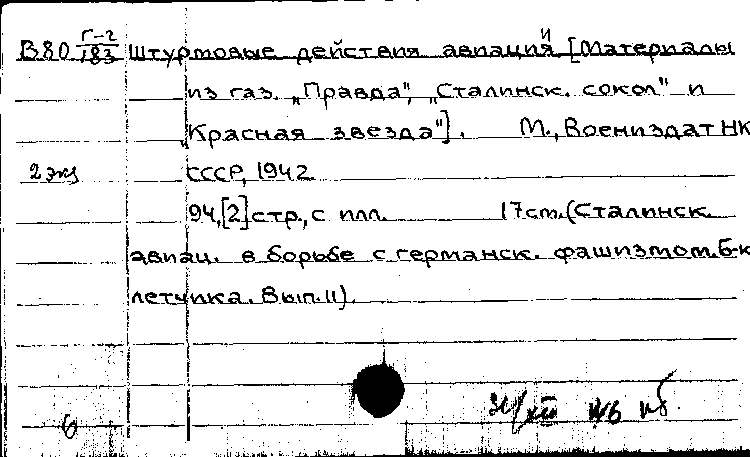 В80 Г-2/183 Штурмовые действия авиации [Материалы
из газ. „Правда", „Сталинск. сокол" и
„Красная звезда"]. М., Воениздат НК
2 экз СССР, 1942
94,[2]стр., с илл. 17см.(Сталинск.
авиац. в борьбе с германск. фашизмом. Б-ка
летчика. Вып. II).
6